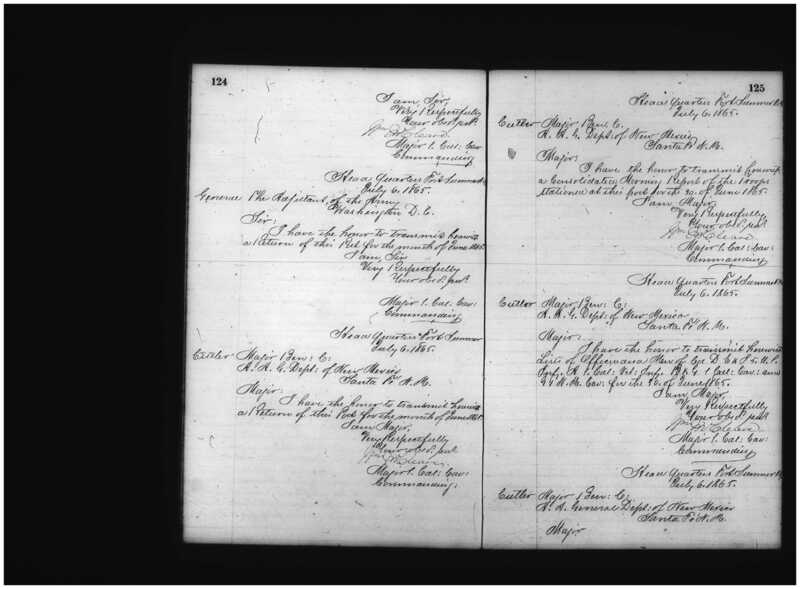 124
I am, Sir,
Very Respectfully
Your obd. servt.
Major 1. Cal: Cav
Commanding
Head Quarters Fort Sumner
July 6. 1865.
General The Adjutant, of the Army
Washington D.C.
Sir;
I have the honor to transmit herewith
a Return of this Post for the month of June 1865.
I am, Sir
Very Respectfully
Your obd. servt.
Major 1. Cal: Cav:
Commanding
Head Quarters Fort Sumner
July 6. 1865.
Cutler Major Ben: C:
A. A. G. Dept: of New Mexico
Santa Fé N. M.
Major:
I have the honor to transmit herewith
a Return of this Post for the month of June 1865.
I am Major,
Very Respectfully
Your obd. servt
Major 1. Cal: Cav:
Commanding.
125
Head Quarters Fort Sumner
July 6. 1865.
Cutler Major Ben C.
A. A. G. Dept: of New Mexico
Santa Fé N. M.
Major:
I have the honor to transmit herewith
a Consolidated Morning Report of the troops
stationed at this post for the of June 1865.
I am Major
Very Respectfully
Your obd. servt.
Major 1. Cal: Cav:
Commanding
Head Quarters Fort Sumner
July 6. 1865.
Cutler Major Ben: C:
A. A. G. Dept: of New Mexico
Santa Fé N. M.
Major:
I have the honor to transmit herewith
of Co: D. E & I 5. U. S.
Inf: 1. Cal: Vet: Inf: 1 Cal: Cav: and
N. M. Cav: for the of June 1865.
I am Major,
Very Respectfully
Your obd. servt
Major 1. Cal: Cav:
Commanding
Head Quarters Fort Sumner
July 6. 1865.
Cutler Major Ben: C:
A. A. General Dept: of New Mexico
Santa Fé N. M.
Major